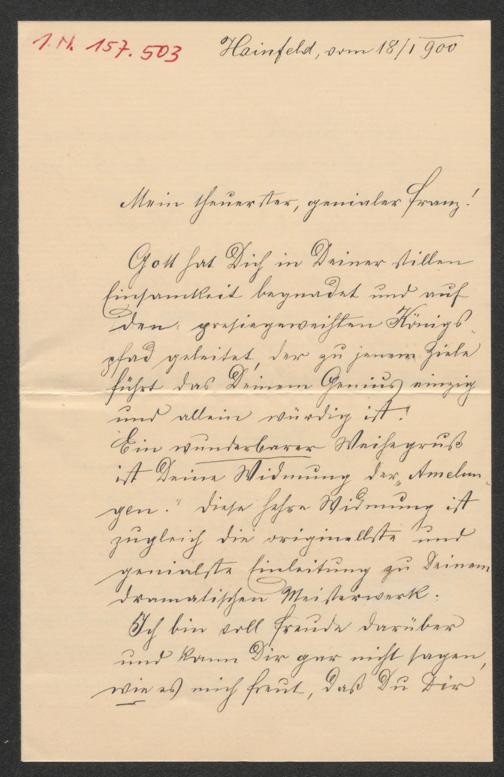 I.N. 157.503
Hainfeld, vom 18/I 900
Mein theuerster, genialer Franz!
Gott hat Dich in Deiner stillen
Einsamkeit begnadet und auf
den poesiegeweihten Königs-
pfad geleitet, der zu jenem Ziele
führt das Deinem Genius einzig
und allein würdig ist.
Ein wunderbarer Weihegruß
ist Deine Widmung der „Amelun-
gen." Diese hehre Widmung ist
zugleich die originellste und
genialste Einleitung zu Deinem
dramatischen Meisterwerk.
Ich bin voll Freude darüber
und kann Dir gar nicht sagen,
wie es mich freut, daß Du Dir